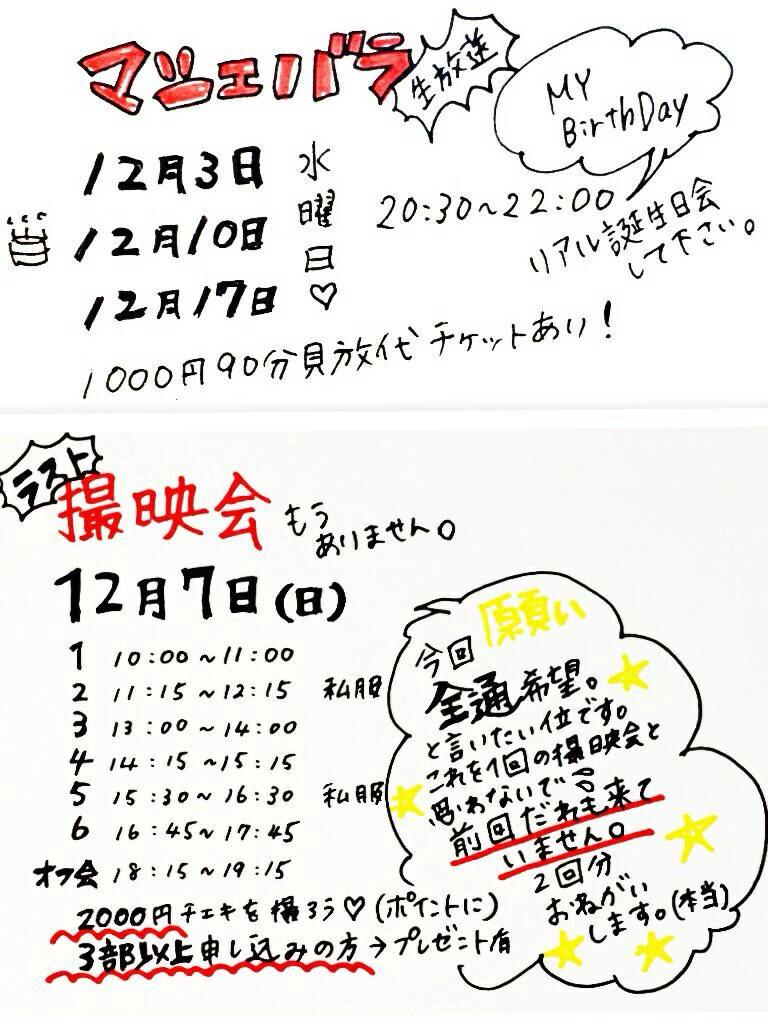 マシェバラ
生放送
MY
BirthDay
12月3日
12月10日
12月17日
水曜日♡
20:30~22:00
リアル誕生日会
して下さい。
1000円90分見放代チケットあり!
ラスト
撮映会
もう
ありません。
12月7日(日)
1 10:00~11:00
2 11:15~12:15 私服
3 13:00~14:00
4 14:15~15:15
5 15:30~16:30 私服
6 16:45~17:45
オフ会 18:15~19:15
2000円チェキを撮ろう♡(ポイントに)
3部以上申し込みの方→プレゼント有
願い
今回
全通希望。
と言いたい位です。
これを1回の撮映会と
思わないで
前回だれも来て
いません。
2回分
おねがい
します。(本当)